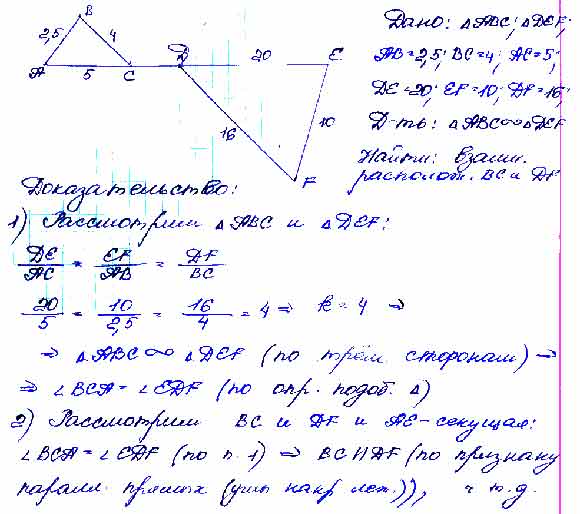 B
2,5
4
A
5
C
D
20
E
16
10
F
Дано: △ABC; △DEF;
AB=2,5; BC=4; AC=5;
DE=20; EF=10; DF=16;
Д-ть: △ABC∞△DEF
Найти: взаим.
располож. BC и DF
Доказательство:
1) Рассмотрим △ABC и △DEF:
DE/AC = EF/AB = DF/BC
20/5 = 10/2,5 = 16/4 = 4 ⇒ k = 4 ⇒
⇒ △ABC∞ △DEF (по трём сторонам) ⇒
⇒ ∠BCA = ∠EDF (по опр. подоб. △)
2) Рассмотрим BC и DF и AE-секущая:
∠BCA=∠EDF (по п. 1) ⇒ BC∥DF (по признаку
паралл. прямых (углы накр леж.)), ч т.д.